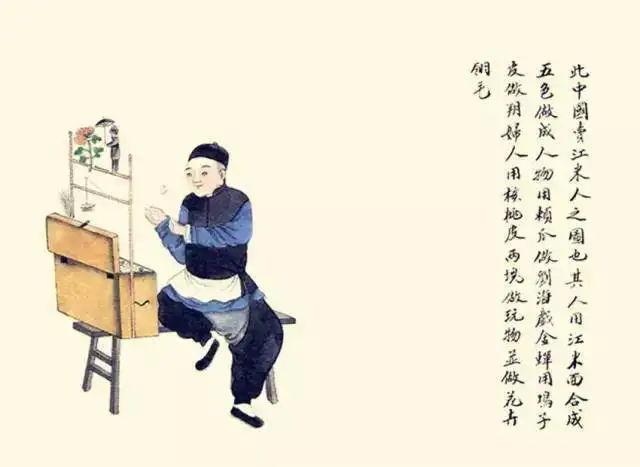 此中國賣江米人之圖也其人用江米面合成
五色做成人物用頼瓜做劉海戲金蟬用鳴子
皮做翔婦人用核桃皮兩塊做玩物並做花卉
翎毛